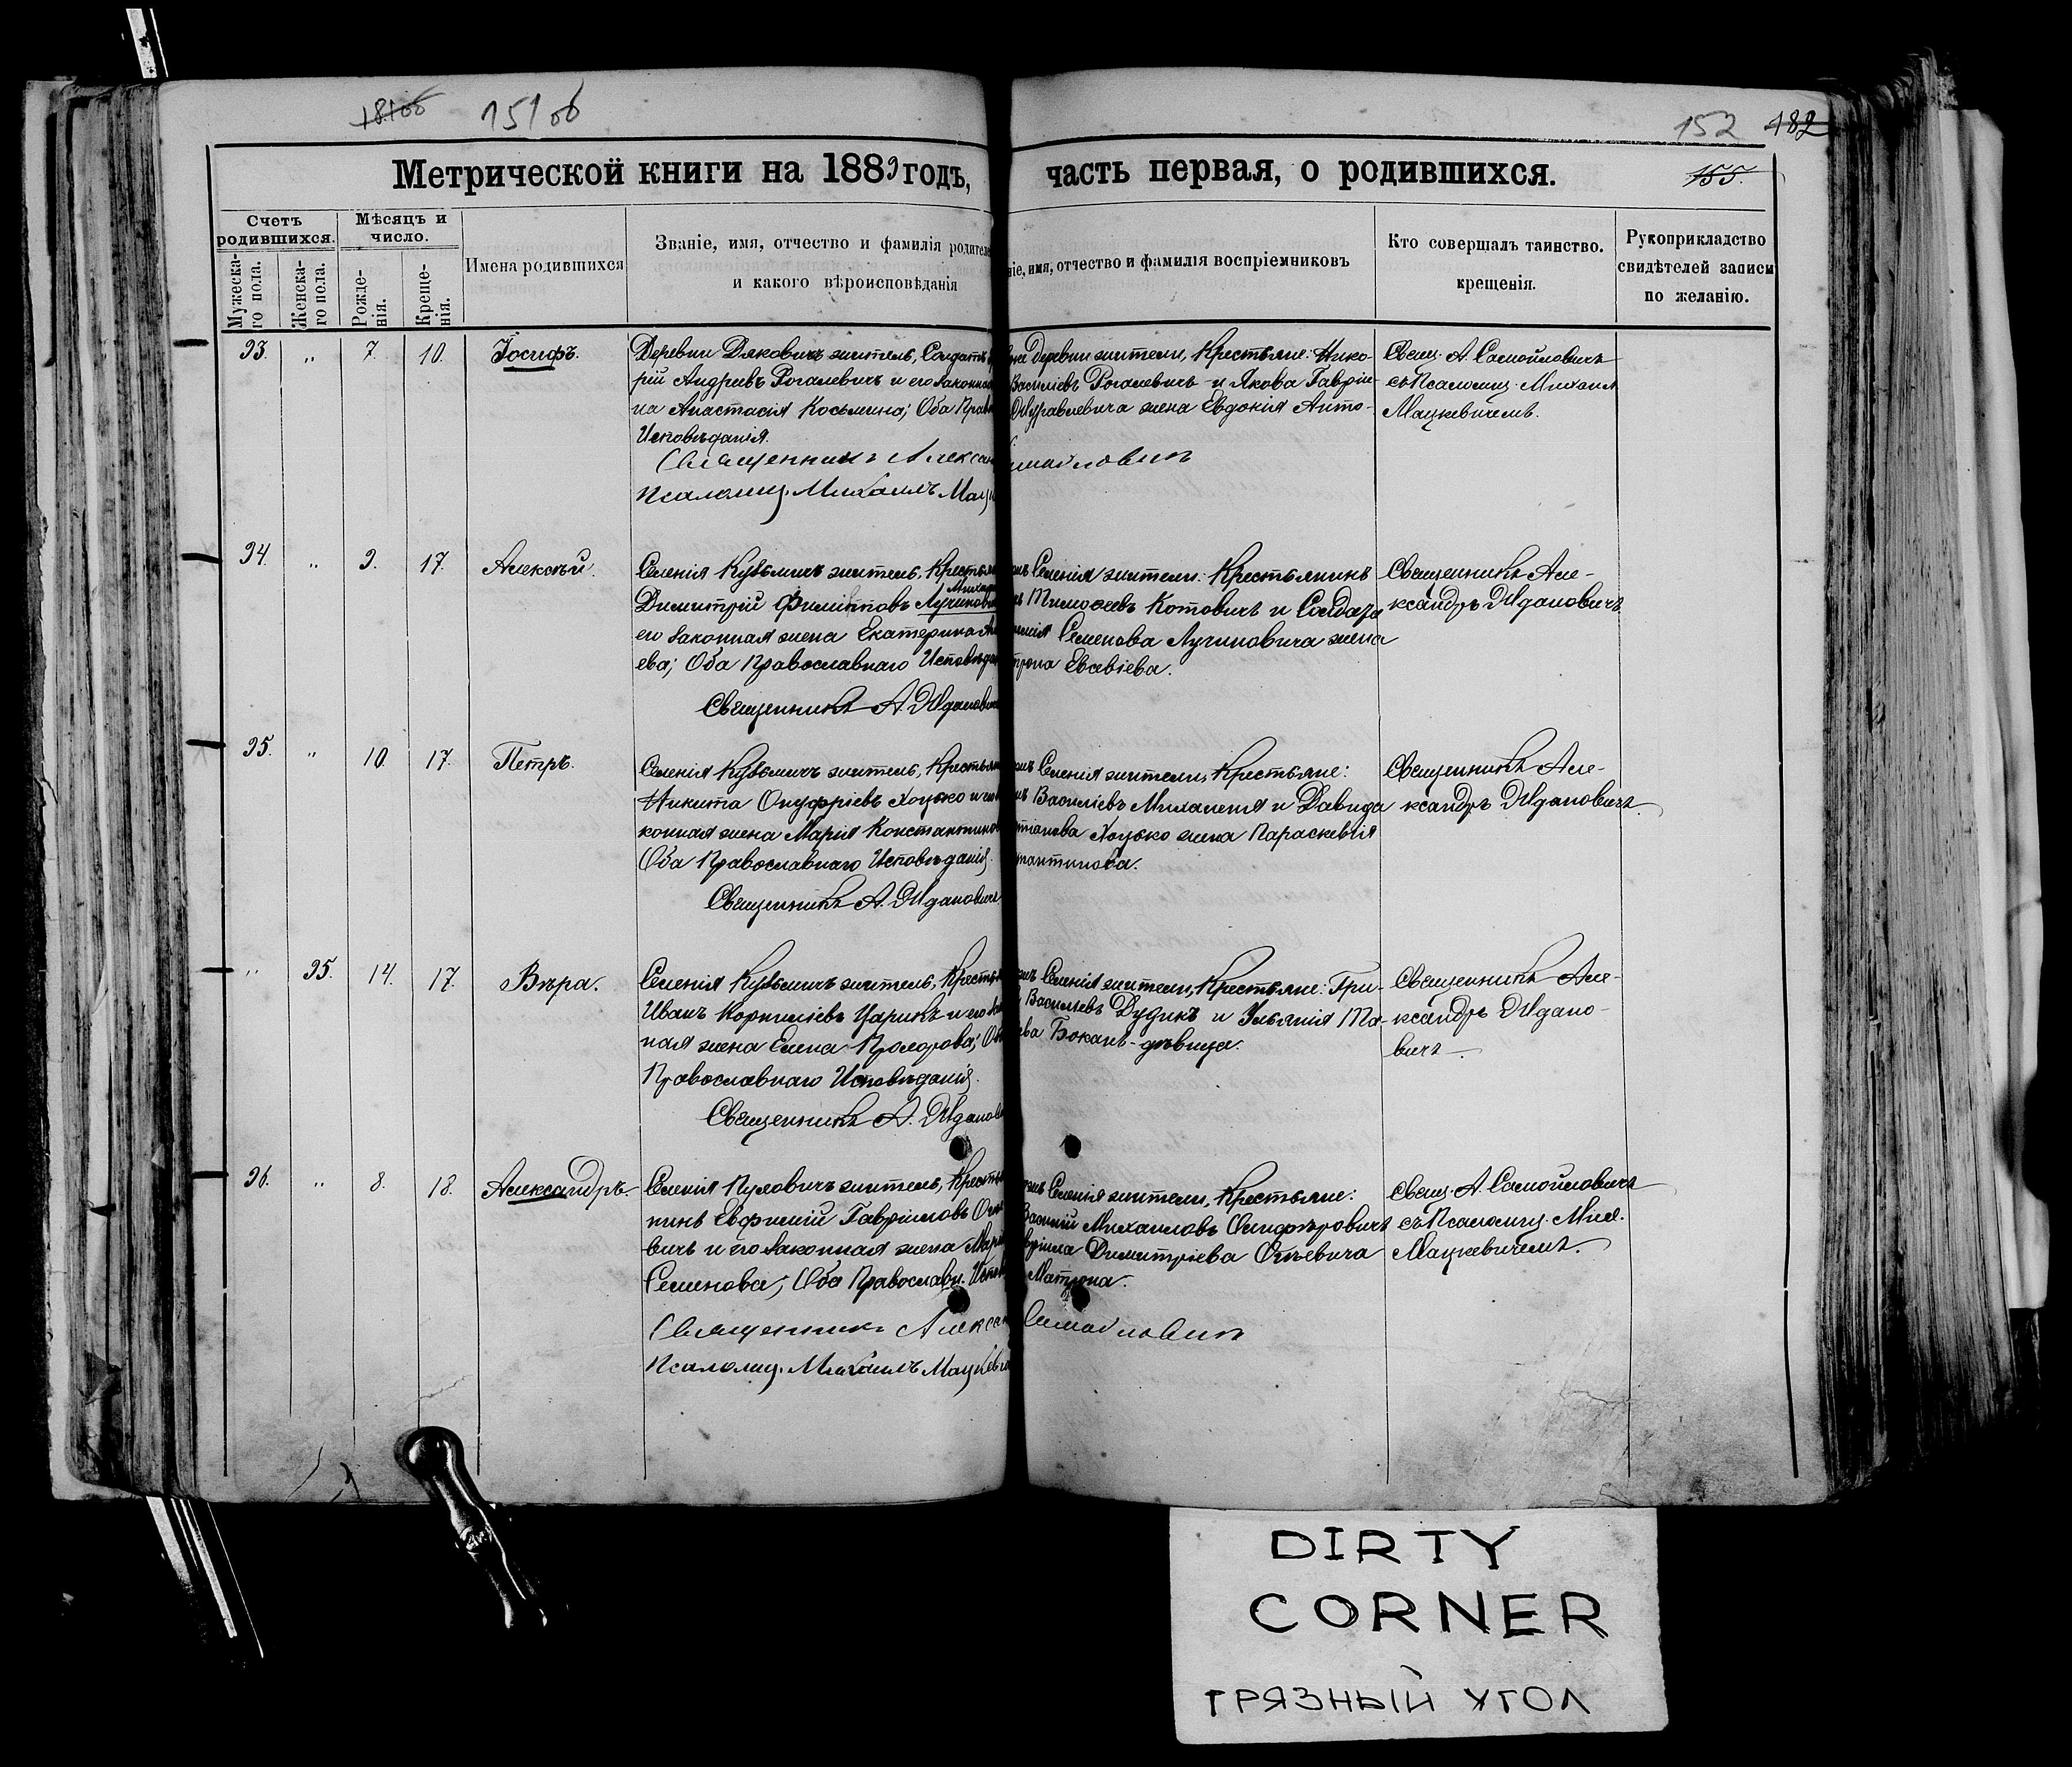 181об 151 об
152 182
Метрической книги на 1889 годъ, часть первая, о родившихся.
155.
Счетъ родившихся.
Мѣсяцъ и число.
Мужеска-го пола.
Женска-го пола.
Рожде-нія.
Креще-нія.
Имена родившихся
Званіе, имя, отчество и фамилія родителе
и какого вѣроисповѣданія
ніе, имя, отчество и фамилія воспріемниковъ
Кто совершалъ таинство.
крещенія.
Рукоприкладство
свидѣтелей записи
по желанію.
93. " 7. 10. Іосифъ.
Деревни Дяковичъ житель, Солдатъ
рій Андреевъ Рогалевичъ и его законная
на Анастасія Косьмина; Оба Прав
Исповѣданія.
Священникъ Алексан
Псаломщ. Михаилъ Мац
же деревни жители, Крестьяне: Нико-
Василіевъ Рогалевичъ и Якова Гавріи-
Журавлевича жена Евдокія Анто-
мойловичъ
Свящ. А. Самойловичъ
съ Псаломщ. Михаил
Мацкевичемъ.
94. " 9. 17. Алексѣй.
Селенія Кузьмичъ житель, Крестьян
Димитрій Филипповъ Лучинович
его законная жена Екатерина
ева; Оба Православнаго Исповѣдан
Священникъ А. Жданович
Селенія жители: Крестьянинъ
Тимофеевъ Котовичъ и Солдата
Семенова Лучиновича жена
трона Евсевіева.
Священникъ Але-
ксандръ Ждановичъ
95. " 10. 17. Петръ.
Селенія Кузьмичъ житель, Крестьян
Никита Онуфріевъ Хоцько и его
конная жена Марія Константинов
Оба Православнаго Исповѣданія.
Священникъ А. Ждановичъ
Селенія жители, Крестьяне:
Василіевъ Михаленя и Давида
Хоцько жена Параскевія
тантинова.
Священникъ Але-
ксандръ Ждановичъ.
" 95. 14. 17. Вѣра.
Селенія Кузьмичъ житель, Крестья
Иванъ Корниліевъ Царикъ и его
ная жена Елена Прохорова; Об
Православнаго Исповѣданія.
Священникъ А. Жданов
Селенія жители, Крестьяне: Гри-
Васильевъ Дудикъ и Ульянія Ма-
ева Боканъ - дѣвица.
Священникъ Але-
ксандръ Ждано-
вичъ.
96. " 8. 18. Александръ.
Селенія Пуховичъ житель, Крестья
нинъ Евфимій Гавріиловъ
вичъ и его законная жена Мар
Семенова; Оба Православн. Испов
Священникъ Алексан
Псаломщ. Михаилъ Мацкеви
Селенія жители, Крестьяне:
Василій Михаиловъ Олиферовичъ
вріила Димитріева Огіевича
Матрона.
Самойловичъ
Свящ. А. Самойловичъ
съ Псаломщ. Мих.
Мацкевичемъ.
DIRTY
CORNER
ГРЯЗНЫЙ УГОЛ